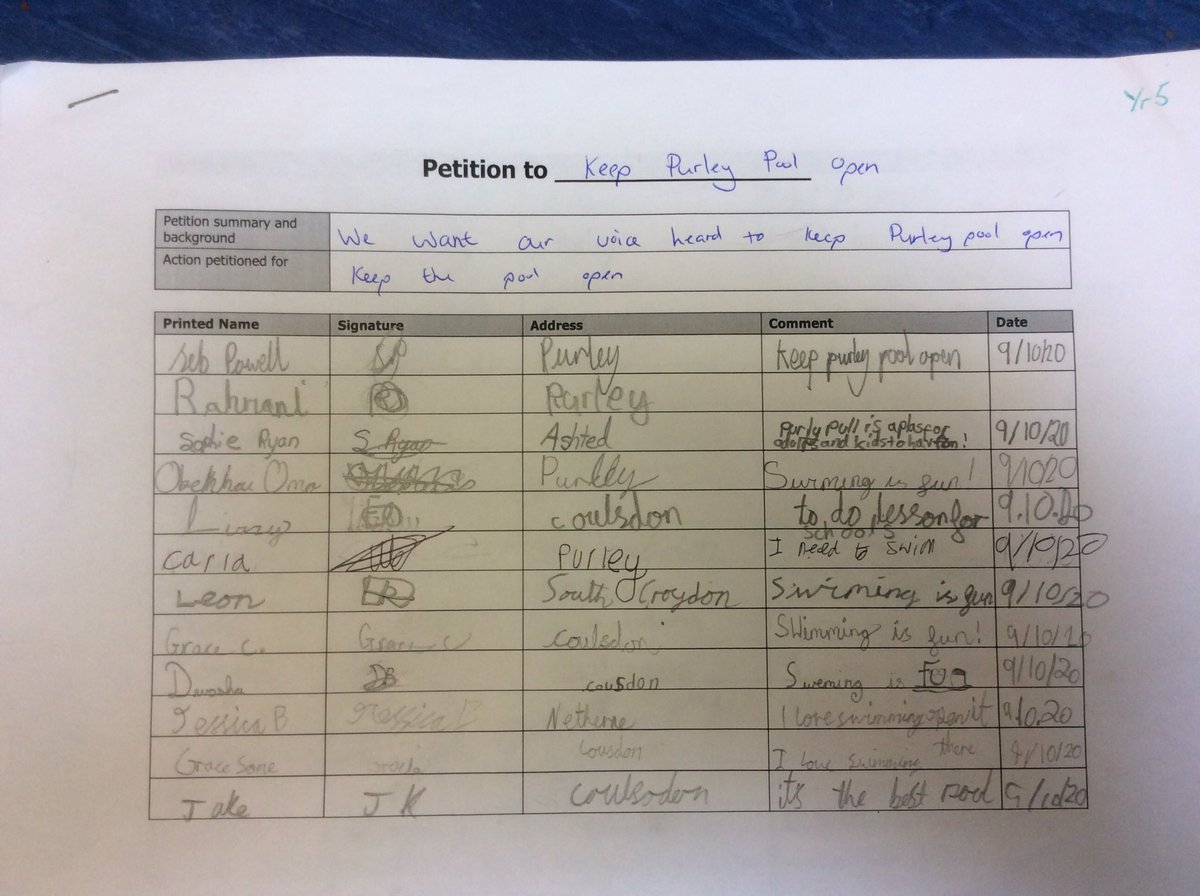 Yr5
Petition to Keep Purley Pool open
Petition summary and background We want our voice heard to keep Purley pool open
Action petitioned for Keep the pool open
Printed Name Signature Address Comment Date
Seb Powell SP Purley Keep purley pool open 9/10/20
Rahmani Purley
Sophie Ryan S Ryan Ashted Purly Pull is a plas for
adolts and kids to hav fon! 9/10/20
Obekhai Omo Purlley Swrming is fun! 9/10/20
Lizzy coulsdon to do lesson for
schools 9.10.20
Carla Purley I need to swim 9/10/20
Leon South Croydon Swirming is fun 9/10/20
Grace C. Grace C coulsdon Swimming is fun! 9/10/20
DB cousdon Sweming is Fun 9/10/20
Jessica B Jessica B Netherne I love swimming open it 9.10.20
Grace Cousdon I love swimming there 9/10/20
Jake JK Coulsodon it's the best pool 9/10/20